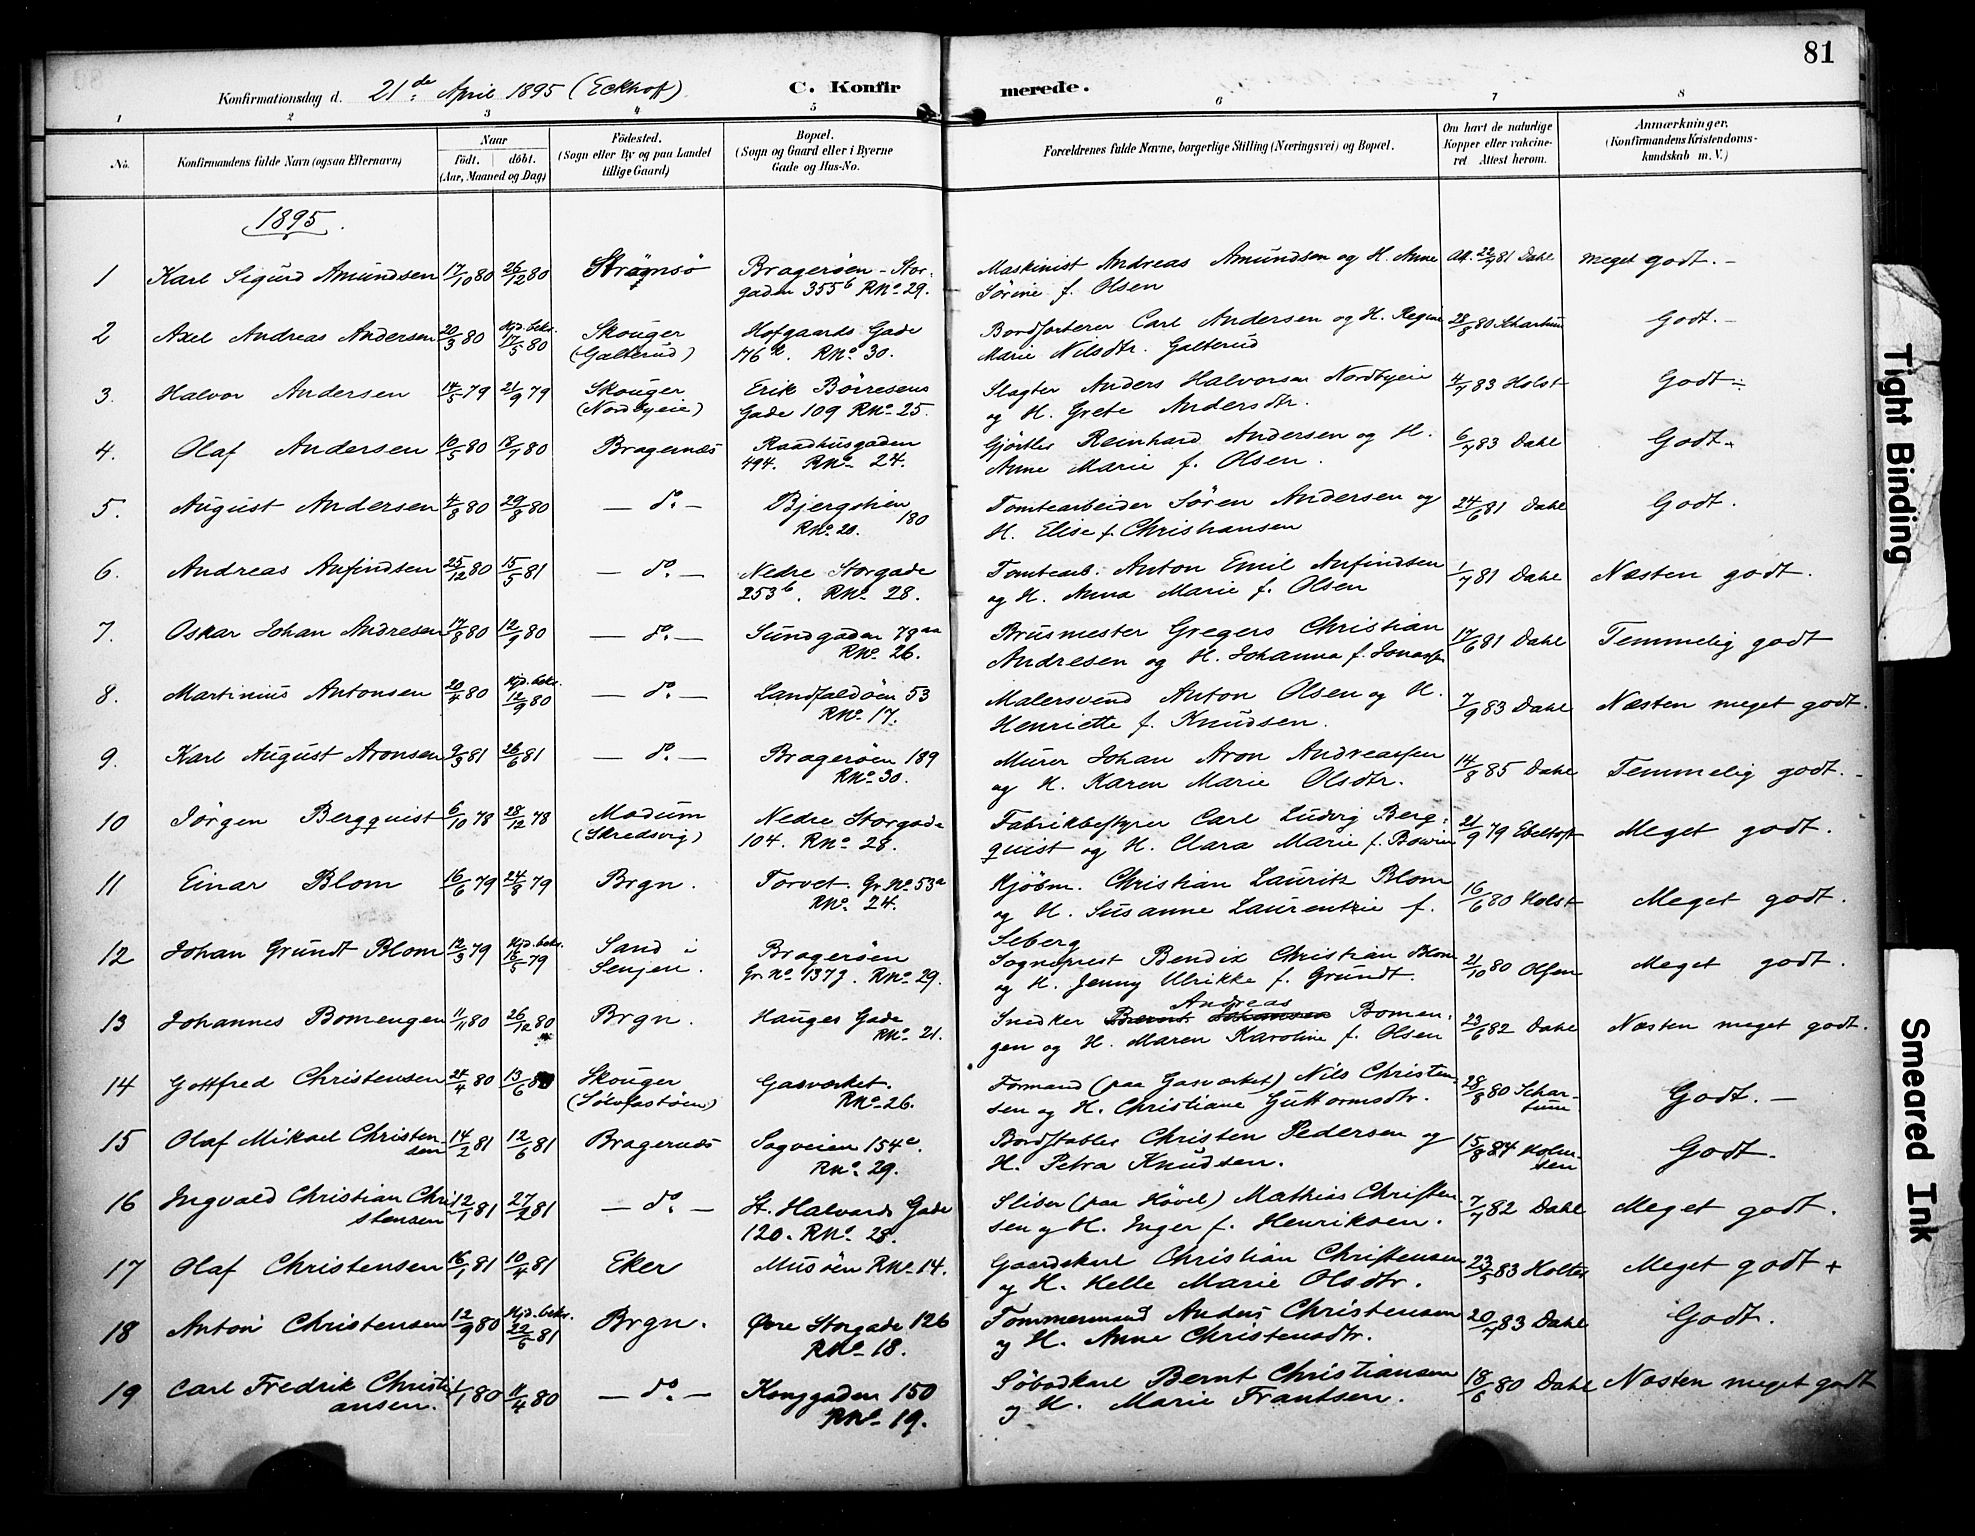 81
Konfirmationsdag d. 21de April 1895 (Eckhoff) C. Konfirmerede.
1 2 3 4 5 6 7 8
No. Konfirmandens fulde Navn (ogsaa Efternavn) Naar Födt. döbt. (Aar, Maaned og Dag) Födested. (Sogn eller By og paa Landet tillige Gaard) Bopæl. (Sogn og Gaard eller i Byerne Gade og Hus-No. Forældrenes fulde Navne, borgerlige Stilling (Næringsvei) og Bopæl. Om havt de naturlige Kopper eller vakcineret Attest herom. Anmærkninger. (Konfirmandens Kristendomskundskab m. V.)
1895.
1 Karl Sigurd Amundsen 17/10 80 26/12 80 Strömsö Bragerøen - Storgaden 355b RNo. 29. Maskinist Andreas Amundsen og H. Anne Sörine f. Olsen 22/7 81 Dahl meget godt. -
2 Axel Andreas Andersen 20/3 80 Hjd. bekr. 17/5 80 Skouger (Galterud) Hofgaards Gade RNo. 30. Bordsorterer Carl Andersen og H. Regine Marie Nilsdtr. Galterud 28/8 80 Schartum Godt. -
3. Halvor Andersen 14/5 79 21/9 79 Skouger (Nordbyeie) Erik Börresens Gade 109 RNo. 25. Slagter Anders Halvorsen Nordbyeie og H. Grete Andersdtr. 4/7 83 Holst Godt
4. Olaf Andersen 10/5 80 18/7 80 Bragernæs Raadhusgaden 494. RNo. 24. Gjörtler Reinhard Andersen og H. Anne Marie f. Olsen. 6/7 83 Dahl Godt
5. August Andersen 4/8 80 29/8 80 — do. — Bjergstien 180 RNo. 20. Tomtearbeider Sören Andersen og H. Elise f. Christiansen 24/6 81 Dahl Godt.
6. Andreas Anfindsen 25/12 80 15/5 81 — do. — Nedre Storgade 253b. RNo. 28. Tomtearb. Anton Emil Anfindsen og H. Anna Marie f. Olsen 1/7 81 Dahl Næsten godt.
7. Oskar Johan Andresen 17/8 80 12/9 80 — do. — Sundgaden 78aa RNo. 26. Brusmester Gregers Christian Andresen og H. Johanna f. Jonassen 17/6 81 Dahl Temmelig godt
8. Martinius Antonsen 20/4 80 Hjd. bekr. 12/9 80 — do. — Landfaldöen 53 RNo. 17. Malersvend Anton Olsen og H. Henriette f. Knudsen. 7/9 83 Dahl Næsten meget godt.
9. Karl August Aronsen 9/3 81 26/6 81 — do. — Bragerøen 189 RNo. 30. Murer Johan Aron Andreassen og H. Karen Marie Olsdtr. 14/8 85 Dahl Temmelig godt. -
10 Jörgen Bergquist 6/10 78 28/12 78 Modum (Skredsvig) Nedre Storgade 104. RNo. 28. Fabrikbestyrer Carl Ludvig Bergquist og H. Clara Marie f. 21/9 79 Ebeltoft Meget godt.
11 Einar Blom 16/6 79 24/8 79 Brgn. Torvet. Gr. No. 53a RNo. 24. Kjöbm. Christian Lauritz Blom og H. Susanne Laurentzie f. Seberg 16/6 80 Holst Meget godt.
12 Johan Grundt Blom 12/3 79 Hjd. bekr. 16/5 79 Sand i Senjen. Bragerøen Gr. No. 137z. RNo. 29. Sognepræst Bendix Christian Blom og H. Jenny Ulrikke f. Grundt. 21/10 80 Olsen Meget godt.
13 Johannes Bomengen 11/11 80 26/12 80 Brgn. Hauges Gade RNo. 21. Snedker Bernt Johansen Andreas Bomengen og H. Maren Karoline f. Olsen 23/6 82 Dahl Næsten meget godt.
14 Gottfred Christensen 24/4 80 13/6 80 Skouger (Sölvfastöen) Gasværket. RNo. 26. Formand (paa Gasværket) Nils Christensen og H. Christiane Guttormsdtr. 28/8 80 Schartum Godt. —
15 Olaf Mikael Christensen 14/2 81 12/6 81 Bragernæs Sagveien 154c. RNo. 29. Bordstabler Christen Pedersen og H. Petra Knudsen. 15/8 84 Holmsen Godt.
16 Ingvald Christian Christensen 12/1 81 27/2 81 — do. — St. Halvards Gade 120. RNo. 28. Sliber (paa Hövel) Mathias Christensen og H. Inger f. Henriksen. 7/7 82 Dahl Meget godt.
17 Olaf Christensen 16/1 81 10/4 81 Eker Musöen RNo. 14. Gaardskarl Christian Christensen og H. Helle Marie Olsdtr. 23/5 83 Holter Meget godt +
18 Anton Christensen 12/9 80 Hjd. bekr. 22/5 81 Brgn. Øvre Storgade 126 RNo. 18. Tømmermand Anders Christensen og H. Anne Christensdtr. 20/7 83 Dahl Godt.
19 Carl Fredrik Christiansen. 1/1 80 11/4 80 — do. — Konggaden 150 RNo. 19. Söbadkarl Bernt Christiansen og H. Marie Frantsen. 18/6 80 Dahl Næsten meget godt
Tight Binding
Smeared Ink